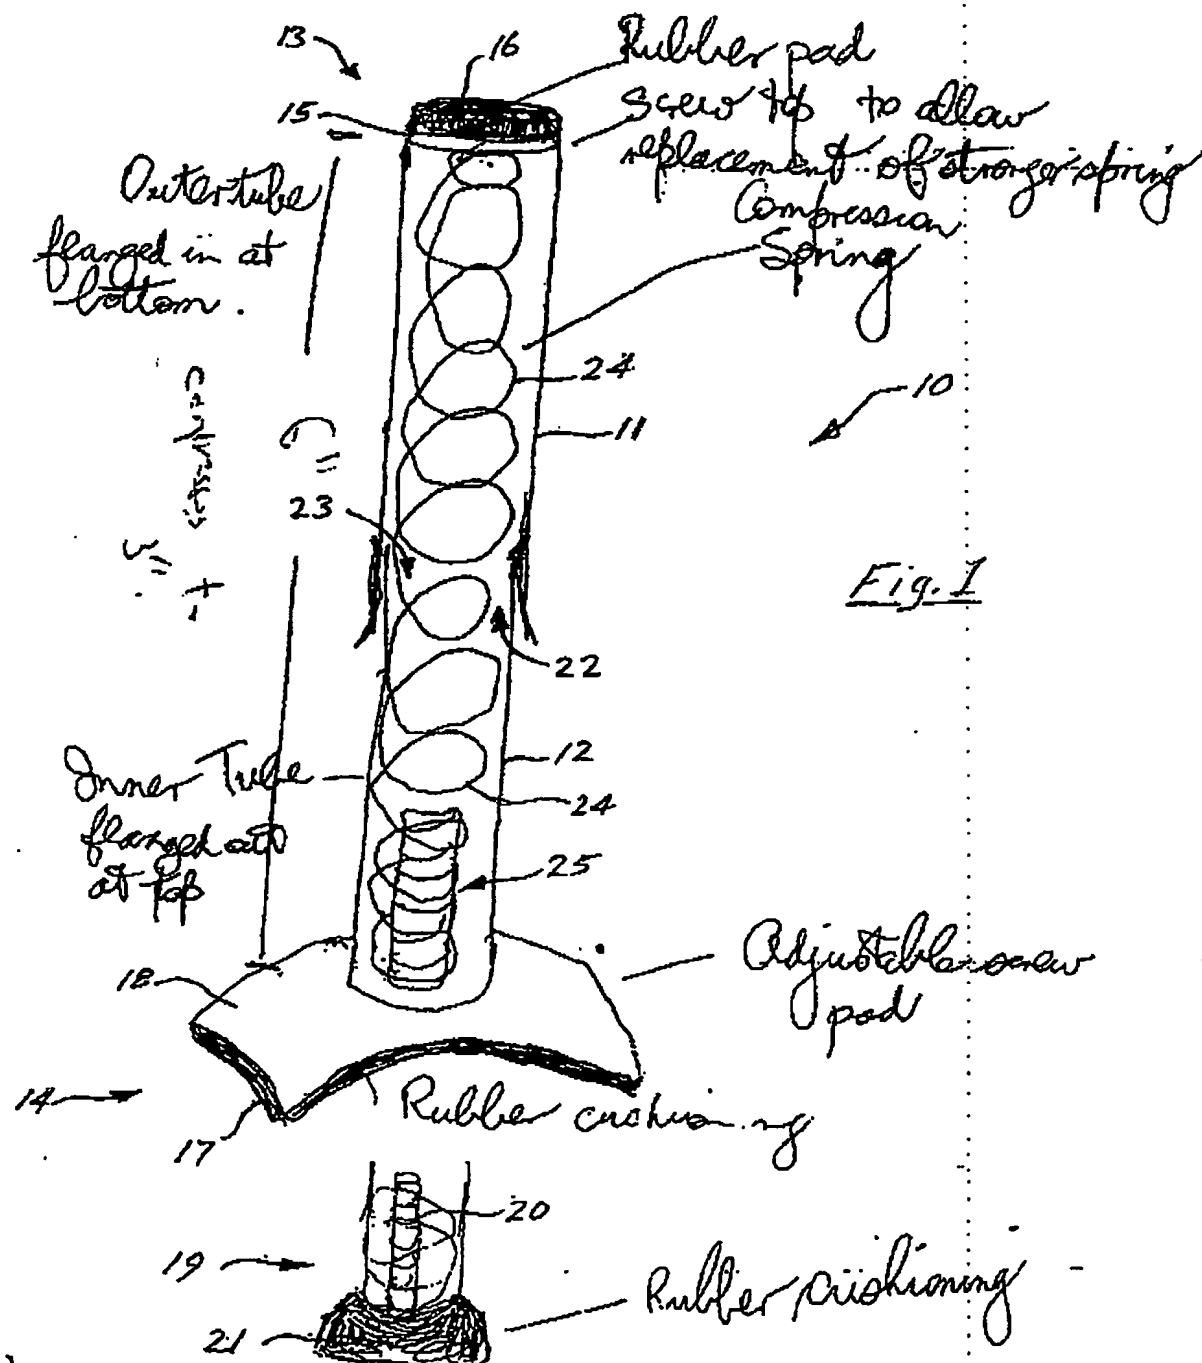 13
16
Rubber pad
15
Screw top to allow
replacement of stronger spring
Outer tube
flanged in at
bottom.
Compression
Spring
24
10
11
23
Fig. 1
22
12
Inner Tube
flanged out
at top
24
25
Adjustable screw
pad
18
14
17
Rubber cushioning
20
19
Rubber cushioning
21